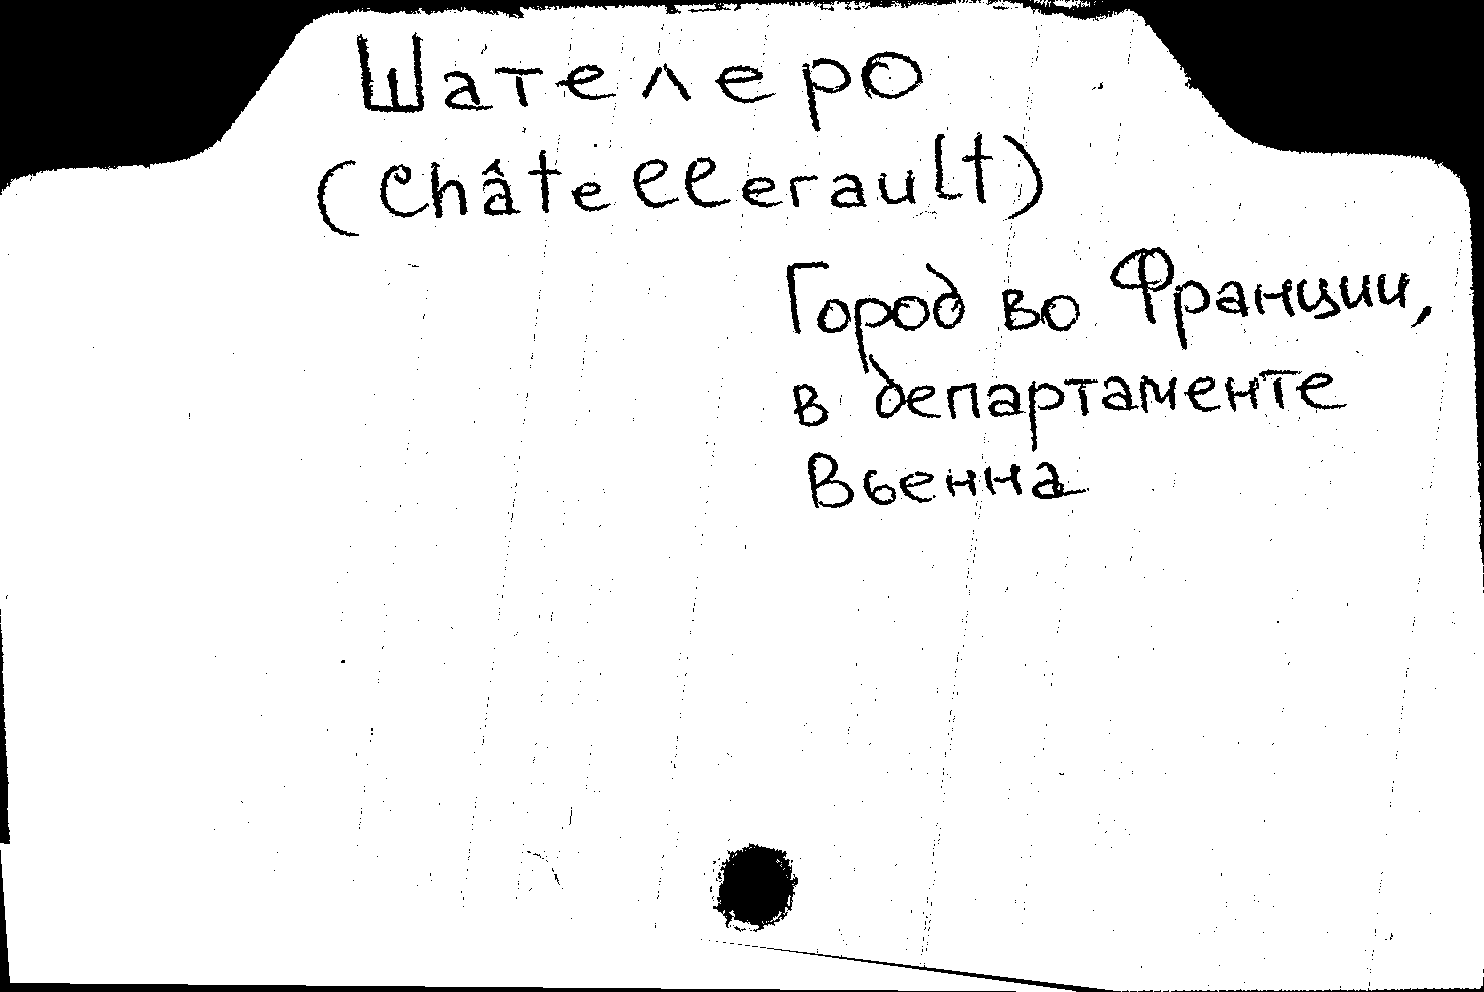 Шателеро
(Châtellerault)
Город во Франции,
в департаменте
Вьенна